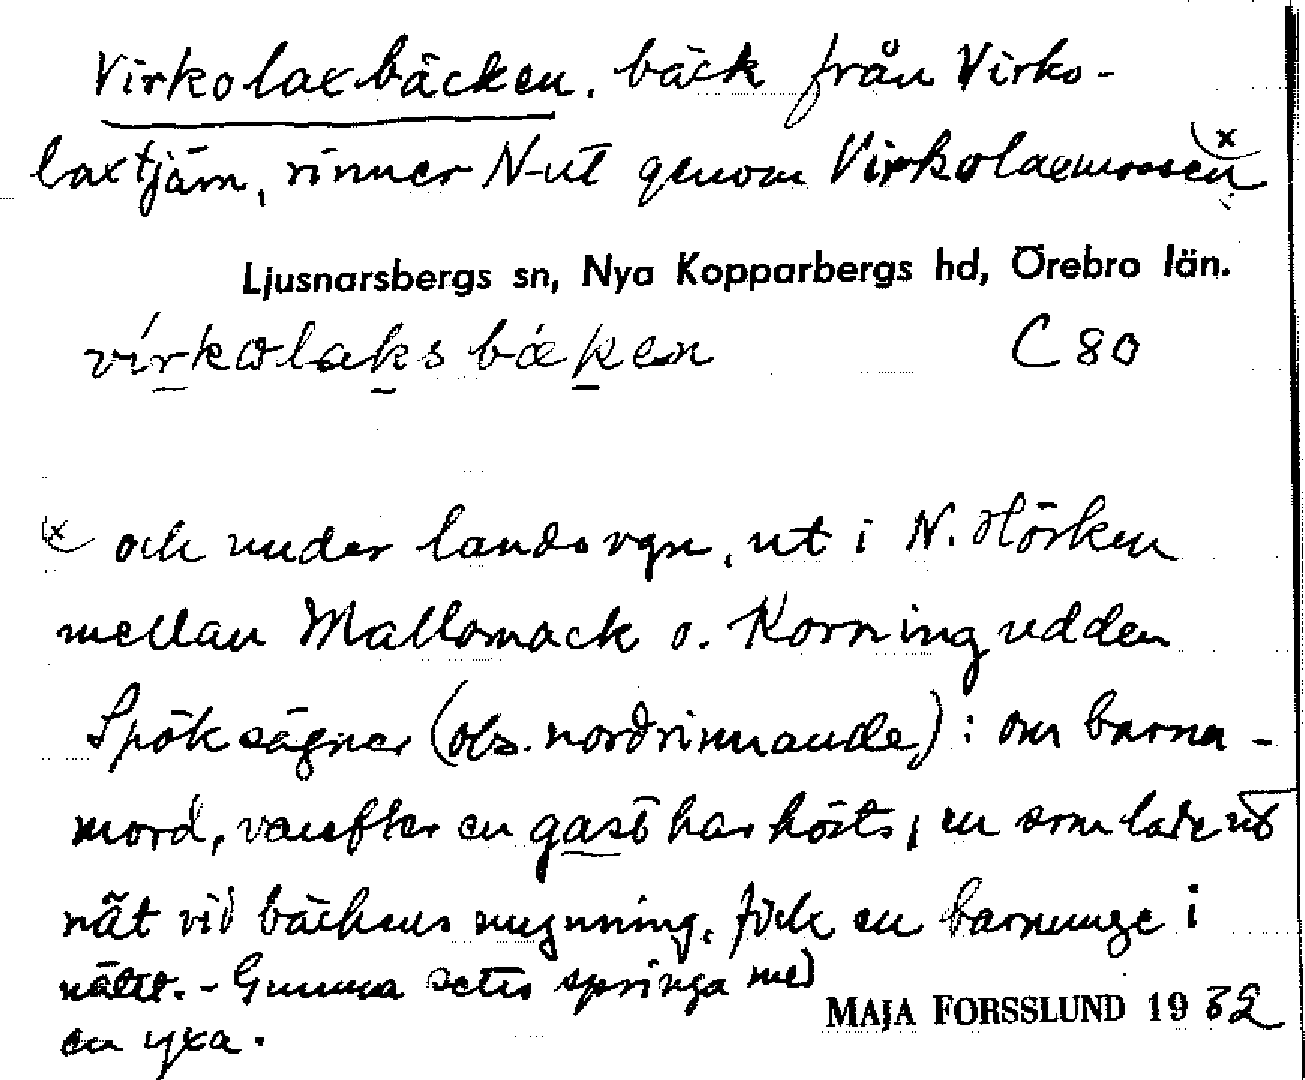 Virkolaxbäcken. bäck från Virko-
laxtjärn, rinner N-ut genom Virkolaxmossen x
Ljusnarsbergs sn, Nya Kopparbergs hd, Örebro län.
vírkωlaks bækεn C 80
x och under landsvgn, ut i N. Hörken
mellan Mallomack o. Korningudden
Spöksägner (obs. nordrinnande): om barna-
mord, varefter en gast har hörts, en som lade ut
nät vid bäckens mynning, fick en barnunge i
nätet. - Gumma setts springa med
en yxa.
MAJA FORSSLUND 1932